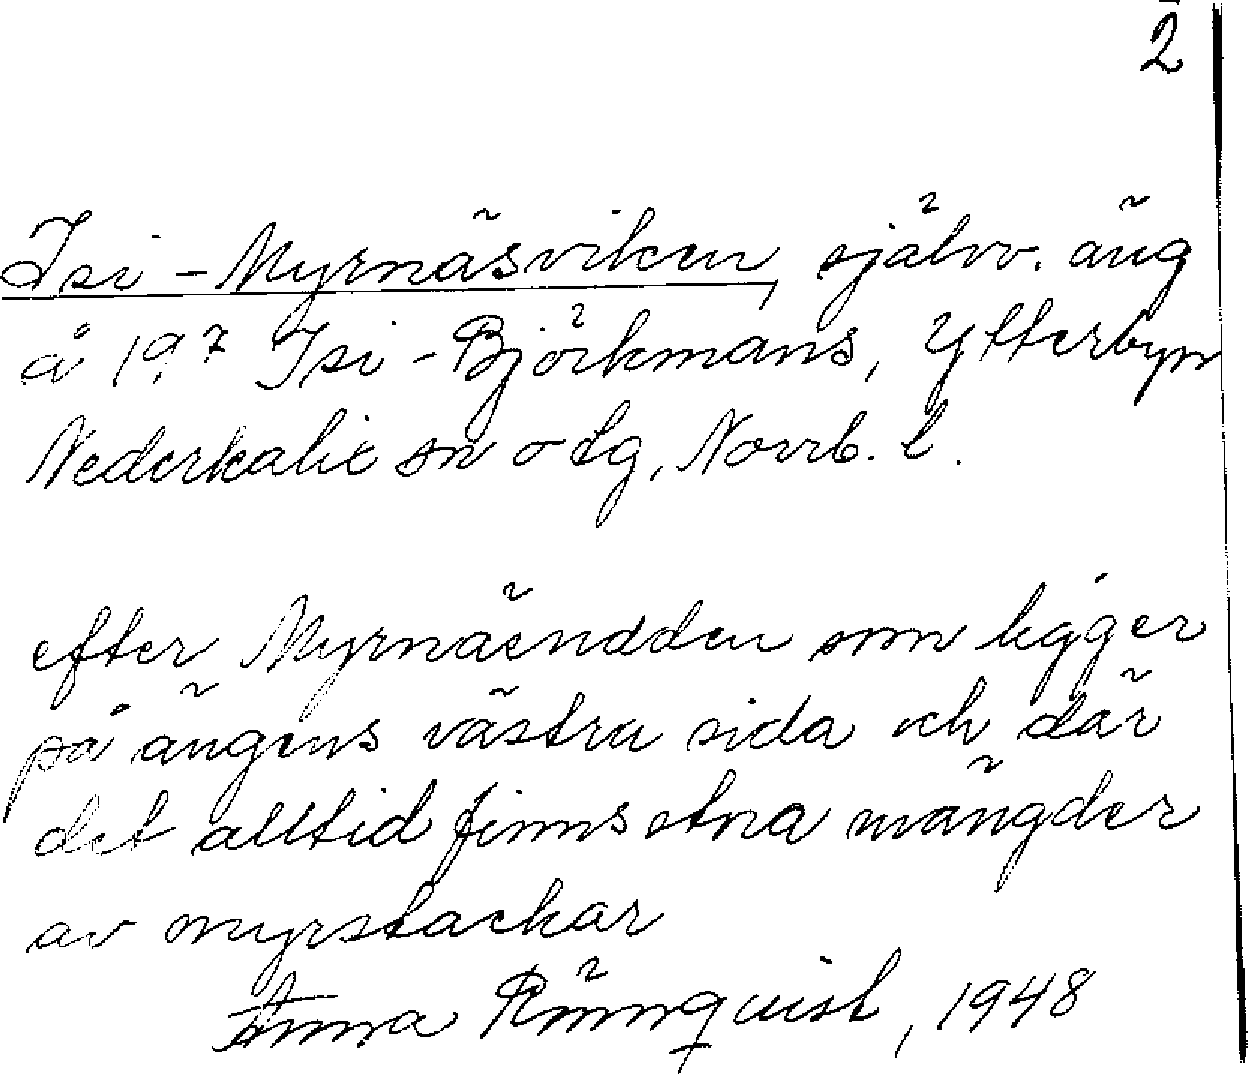 2
Isi-Myrnäsviken, självv. äng
å 19.7 Isi-Björkmans, Ytterbyn
Nederkalix sn o tg, Norrb. l.
efter Myrnäsudden som ligger
på ängens västra sida och där
det alltid finns stora mängder
av myrstackar
Anna Rönnquist, 1948